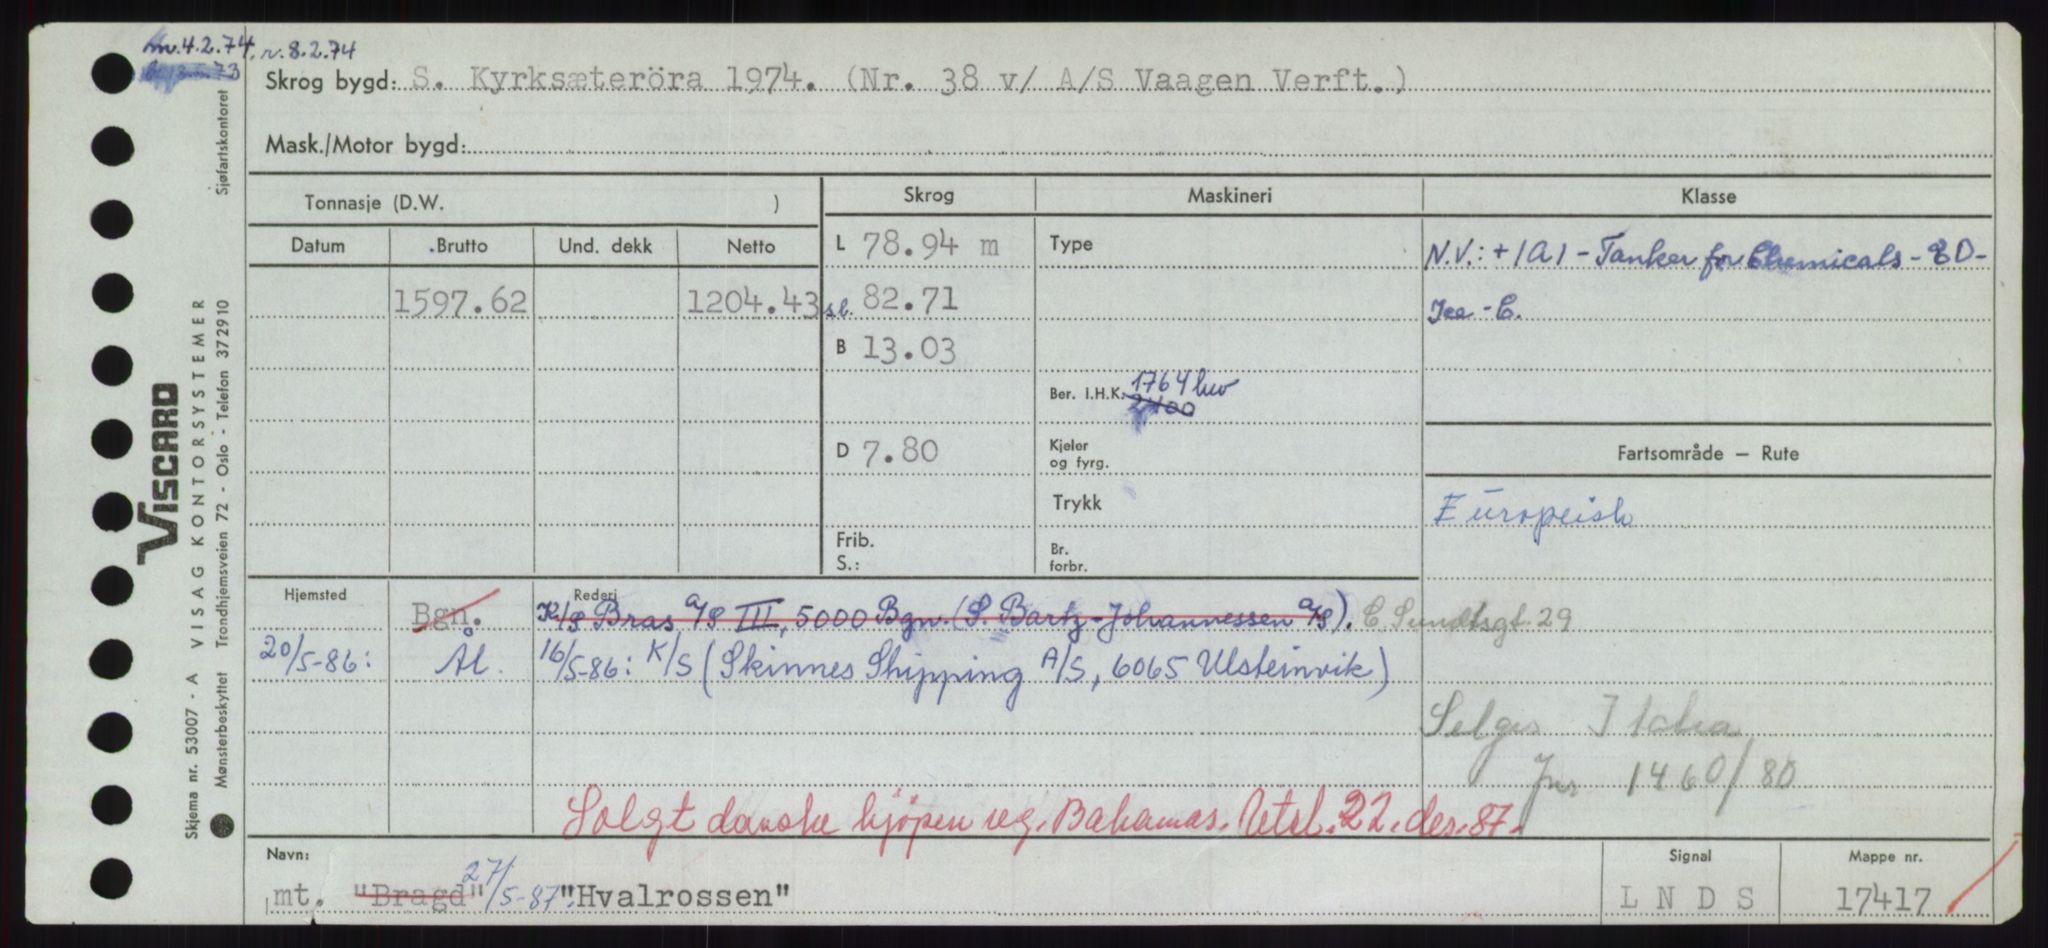 m. 4.2.74. r. 8.2.74
Skrog bygd: S. Kyrksæteröra 1974. (Nr. 38 v/ A/S Vaagen Verft.)
Mask./Motor bygd:
Tonnasje (D.W. )
Skrog
Maskineri
Klasse
Datum Brutto Und. dekk Netto
L 78.94 m
Type
N.V.: + 1A1 - Tanker for Chemicals - ED -
1597.62 1204.43
s.l. 82.71
Ice - C.
B 13.03
Ber. I.H.K. 1764 kw
2400
D 7.80
Kjeler
og fyrg.
Fartsområde — Rute
Trykk
Europeisk
Frib.
S.:
Br.
forbr.
Hjemsted
Rederi
Bgn. K/S Bras A/S III, 5000 Bgn. (S. Bartz-Johannessen A/S). C. Sundtsgt. 29
20/5-86: Ål. 16/5-86: K/S (Skinnes Shipping A/S, 6065 Ulsteinvik)
Selges Italia
Jnr 1460/80
Solgt danske kjøpere reg. Bahamas. Utsl. 22. des. 87.
Navn:
mt. "Bragd" 27/5-87: "Hvalrossen"
Signal
L N D S
Mappe nr.
17417
VISCARD
Skjema nr. 53007 - A VISAG KONTORSYSTEMER
Mønsterbeskyttet Trondhjemsveien 72 - Oslo - Telefon 372910
Sjøfartskontoret